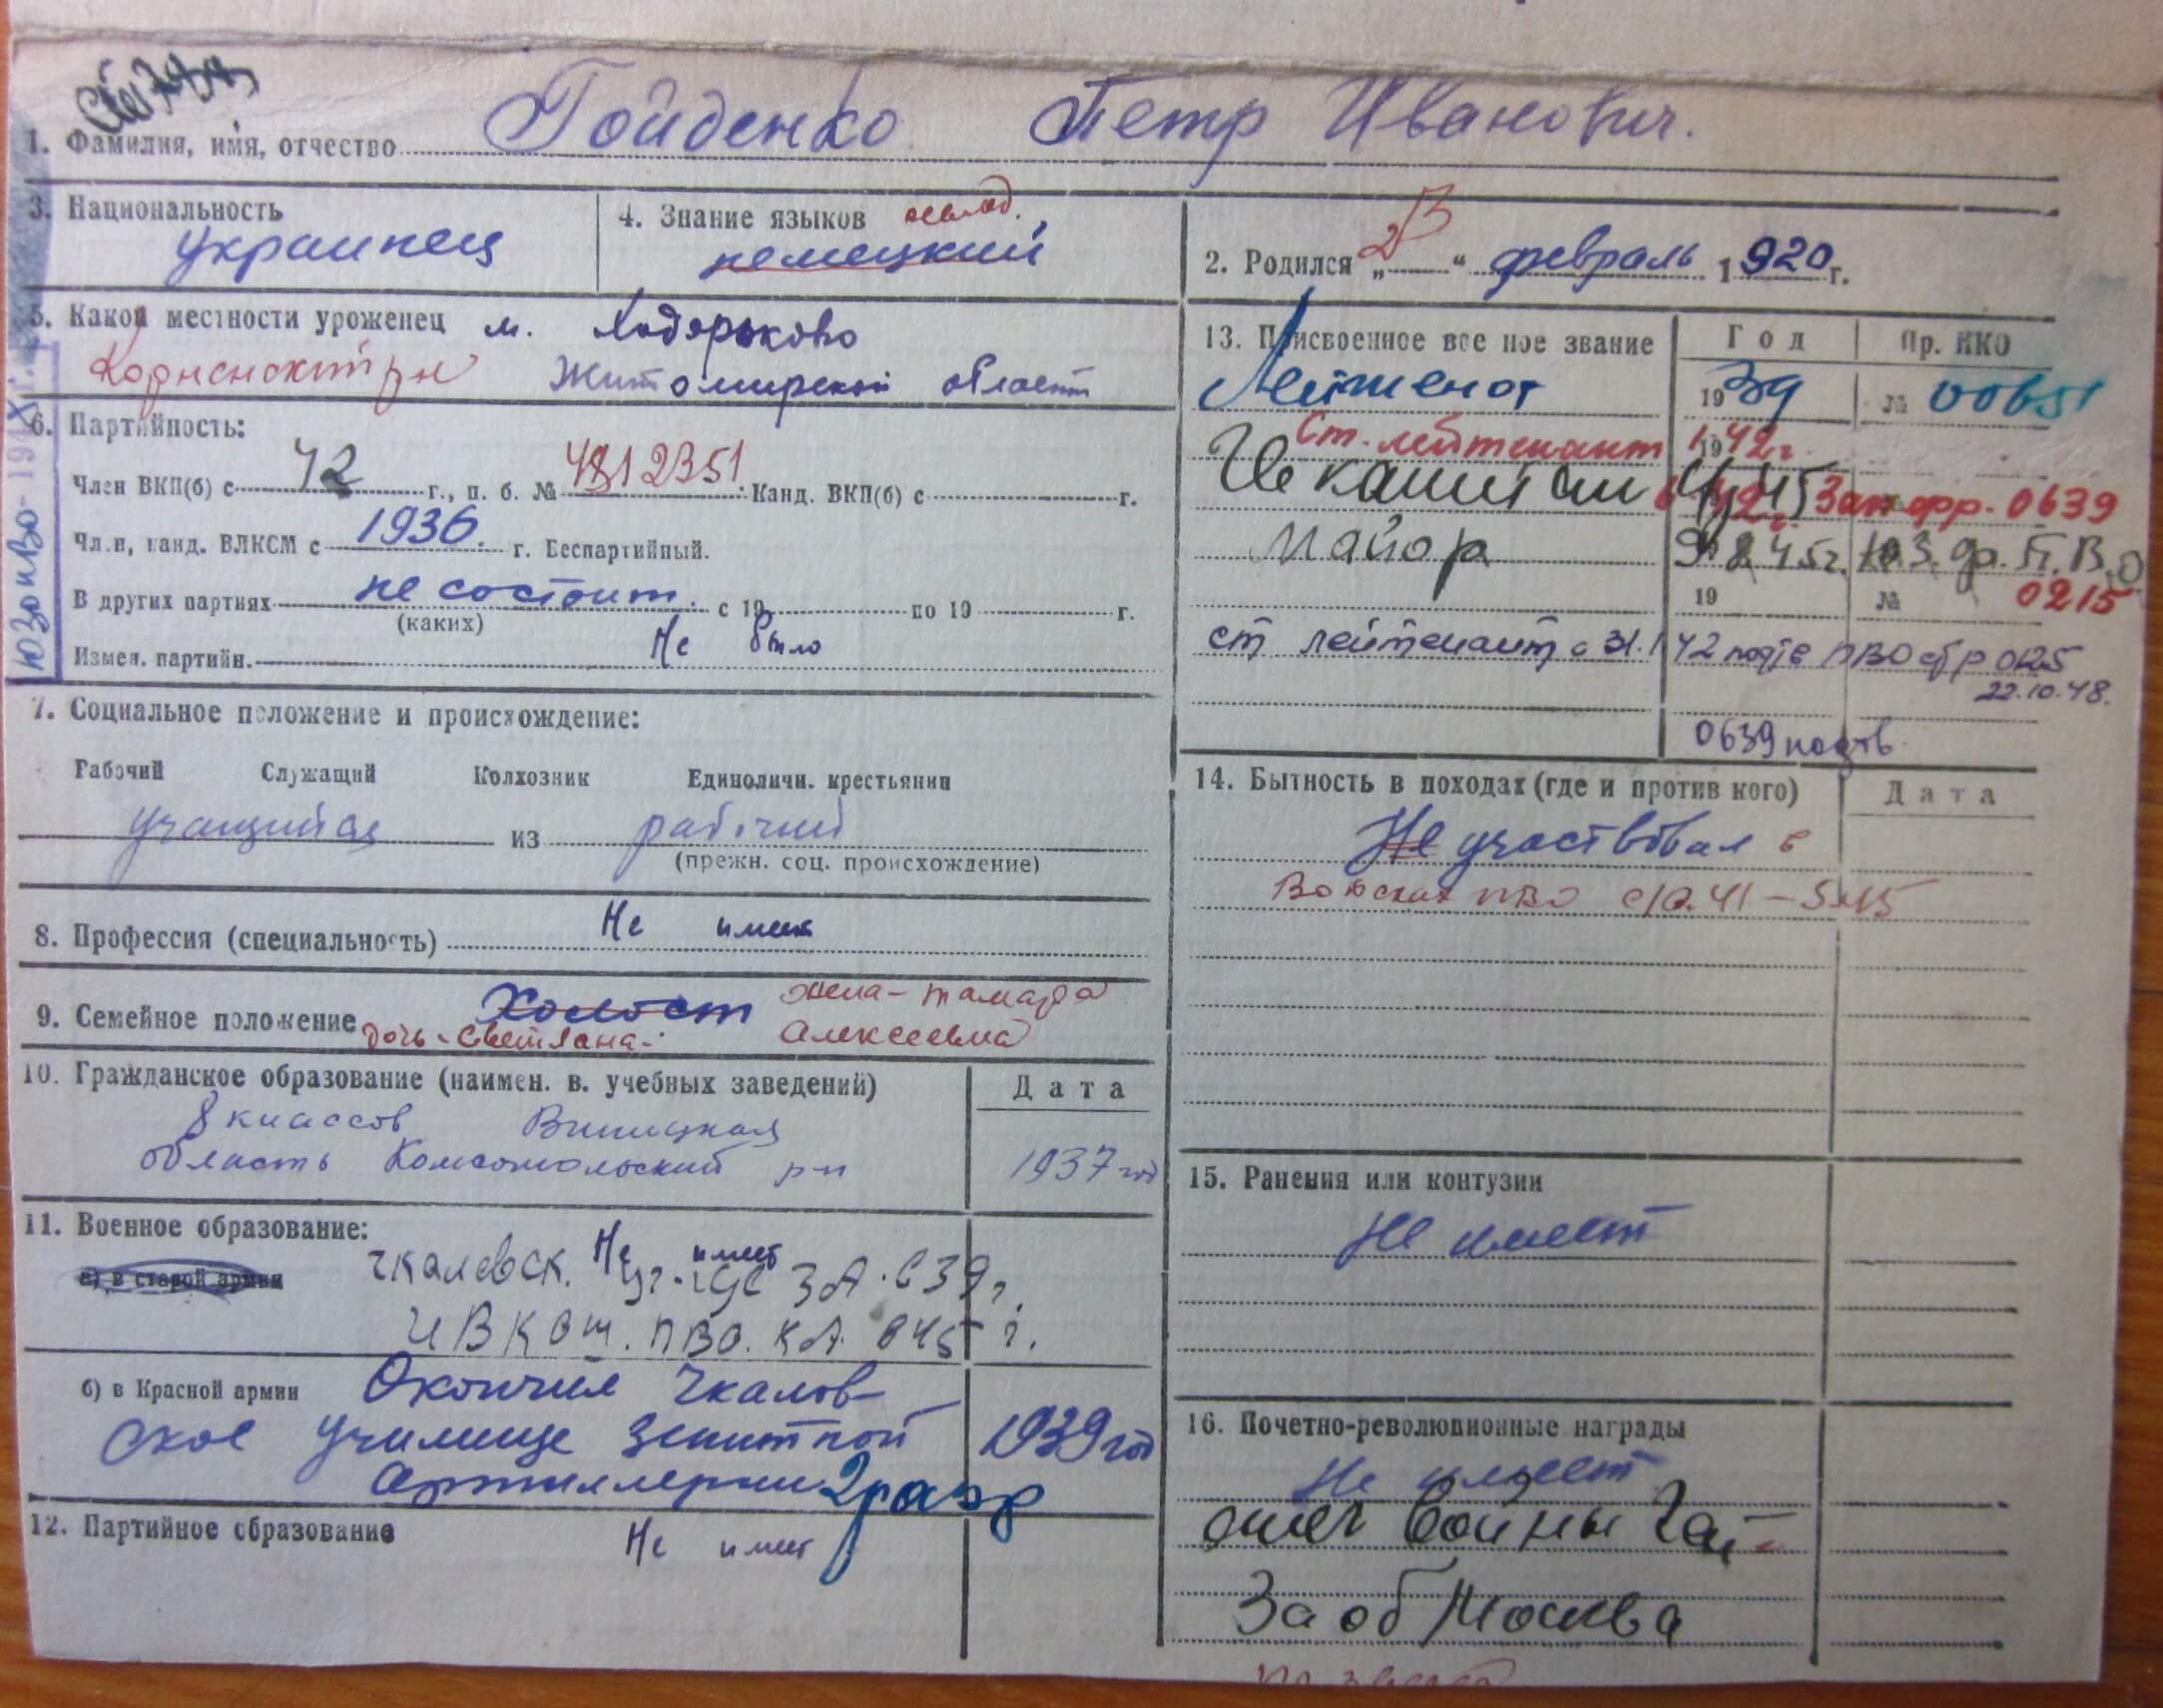 1. Фамилия, имя, отчество Гойденко Петр Иванович.
3. Национальность
украинец
4. Знание языков
немецкий
2. Родился „ “ февраль 1920 г.
5. Какой местности уроженец м. Ходорьково
Корненский рн Житомирской области
6. Партийность:
Член ВКП(б) с 42 г., п. б. № 4812351. Канд. ВКП(б) с г.
Чл.и, канд. ВЛКСМ с 1936. г. Беспартийный.
В других партиях не состоит. с 19 по 19 г.
(каких)
Измен. партийн. Не было
ЮЗОПВО
7. Социальное положение и происхождение:
Рабочий Служащий Колхозник Единоличн. крестьянин
учащийся из рабочий
(прежн. соц. происхождение)
8. Профессия (специальность) Не имеет
9. Семейное положение Холост жена - Тамара
дочь - Светлана. Алексеевна
10. Гражданское образование (наимен. в. учебных заведений) Дата
8 классов Виницкая
область Комсомольский рн 1937 год
11. Военное образование:
Не имеет
а) в старой армии Чкаловск. ЗА. в 39 г.
ПВО. КА. в 45 г.
б) в Красной армии Окончил Чкалов-
ское училище зенитной 1939 год
артиллерии 2 разр
12. Партийное образование Не имеет
13. Присвоенное военное звание Год Пр. НКО
Лейтенант 1939 № 00651
Ст. лейтенант 1942 г.
капитан Зап фр. 0639
майор 45 г. Ю.З. фр. П.В.О
19 № 0215
ст лейтенант с 31.1 42 подтв ПВО стр 0125
22.10.48.
0639 подтв.
14. Бытность в походах (где и против кого) Дата
Не участвовал в
Войсках ПВО с 10.41 - 5.45
15. Ранения или контузии
Не имеет
16. Почетно-революционные награды
Не имеет
войны
За об Москва